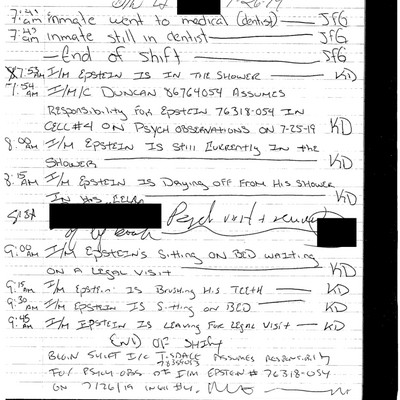 7-26-19
7:41 am inmate went to medical (dentist) JFG
7:47 am inmate still in dentist JFG
End of Shift JFG
7:53 AM I/M EPSTEIN IS IN THE SHOWER KD
7:54 AM I/M/C DUNCAN 86764054 ASSUMES
RESPONSIBILITY FOR EPSTEIN 76318-054 IN
CELL #4 ON PSYCH OBSERVATIONS ON 7-25-19 KD
8:00 AM I/M EPSTEIN IS STILL CURRENTLY IN THE
SHOWER KD
8:15 AM I/M EPSTEIN IS DRYING OFF FROM HIS SHOWER
IN HIS KD
Psych visit +
9:00 AM I/M EPSTEIN'S SITTING ON BED WAITING
ON A LEGAL VISIT KD
9:15 AM I/M EPSTEIN IS BRUSHING HIS TEETH KD
9:30 AM I/M EPSTEIN IS SITTING ON BED KD
9:45 AM I/M EPSTEIN IS LEAVING FOR LEGAL VISIT KD
END OF SHIFT
BEGIN SHIFT I/C ASSUMES RESPONSIBILITY
FOR PSYCH OBS OF I/M EPSTEIN # 76318-054
ON 7/26/19 IN #4.